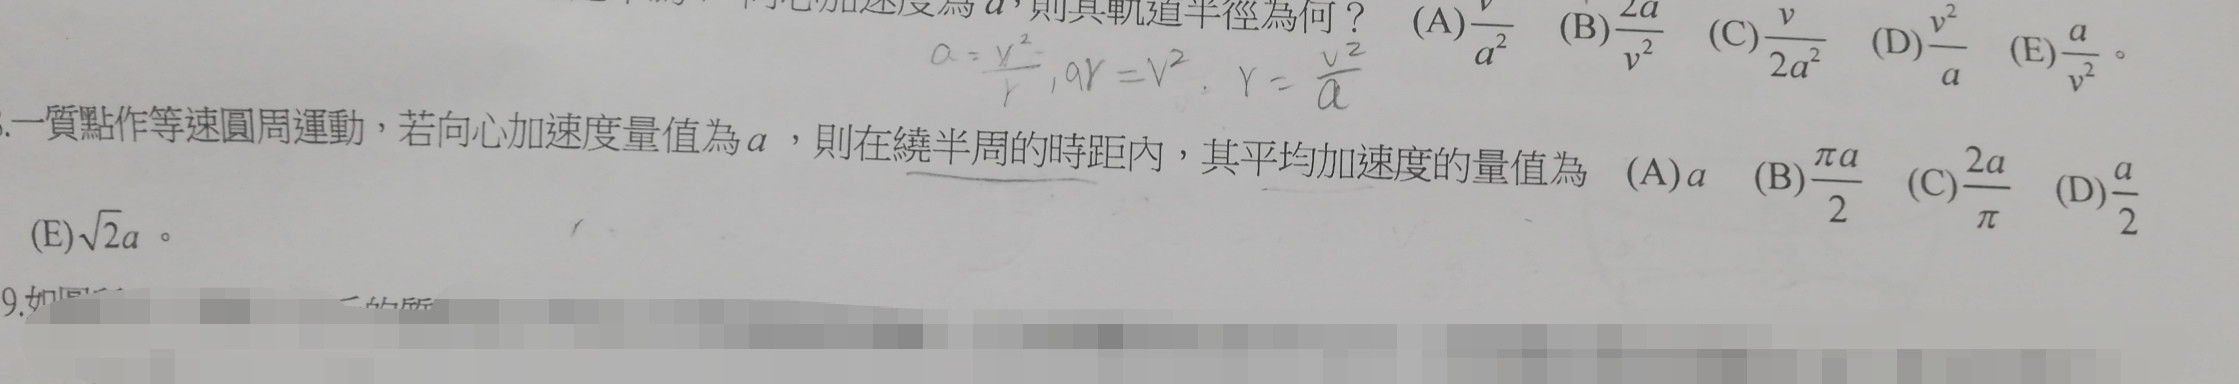 向心加速度為a,則其軌道半徑為何? (A) v/a² (B) 2a/v² (C) v/2a² (D) v²/a (E) a/v²。
a = v²/r , ar = v². r = v²/a
.一質點作等速圓周運動,若向心加速度量值為a,則在繞半周的時距內,其平均加速度的量值為 (A)a (B) πa/2 (C) 2a/π (D) a/2
(E)√2a。
9.如圖